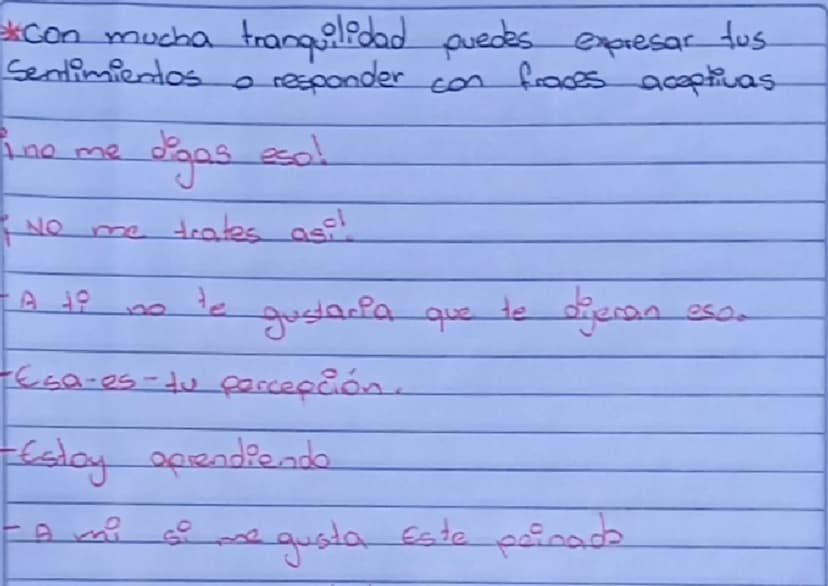 *con mucha tranquilidad puedes expresar tus
Sentimientos o responder con fraces aceptivas
¡no me digas eso!
¡NO me trates así!
-A ti no te gustaría que te dijeran eso.
-Esa-es-tu percepción.
-Estoy aprendiendo
-A mi si me gusta Este peinado